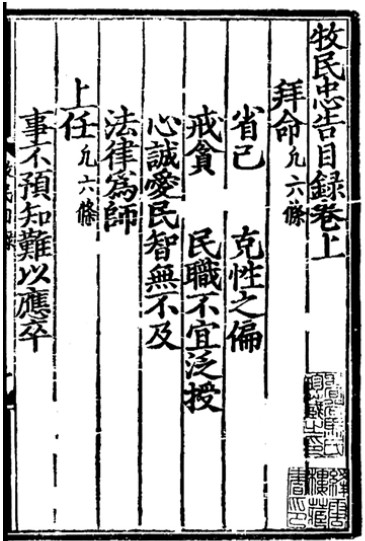 牧民忠告目録卷上
拜命凡六條
省己 克性之偏
戒貪 民職不宜泛授
心誠愛民智無不及
法律為師
上任凡六條
事不預知難以應卒